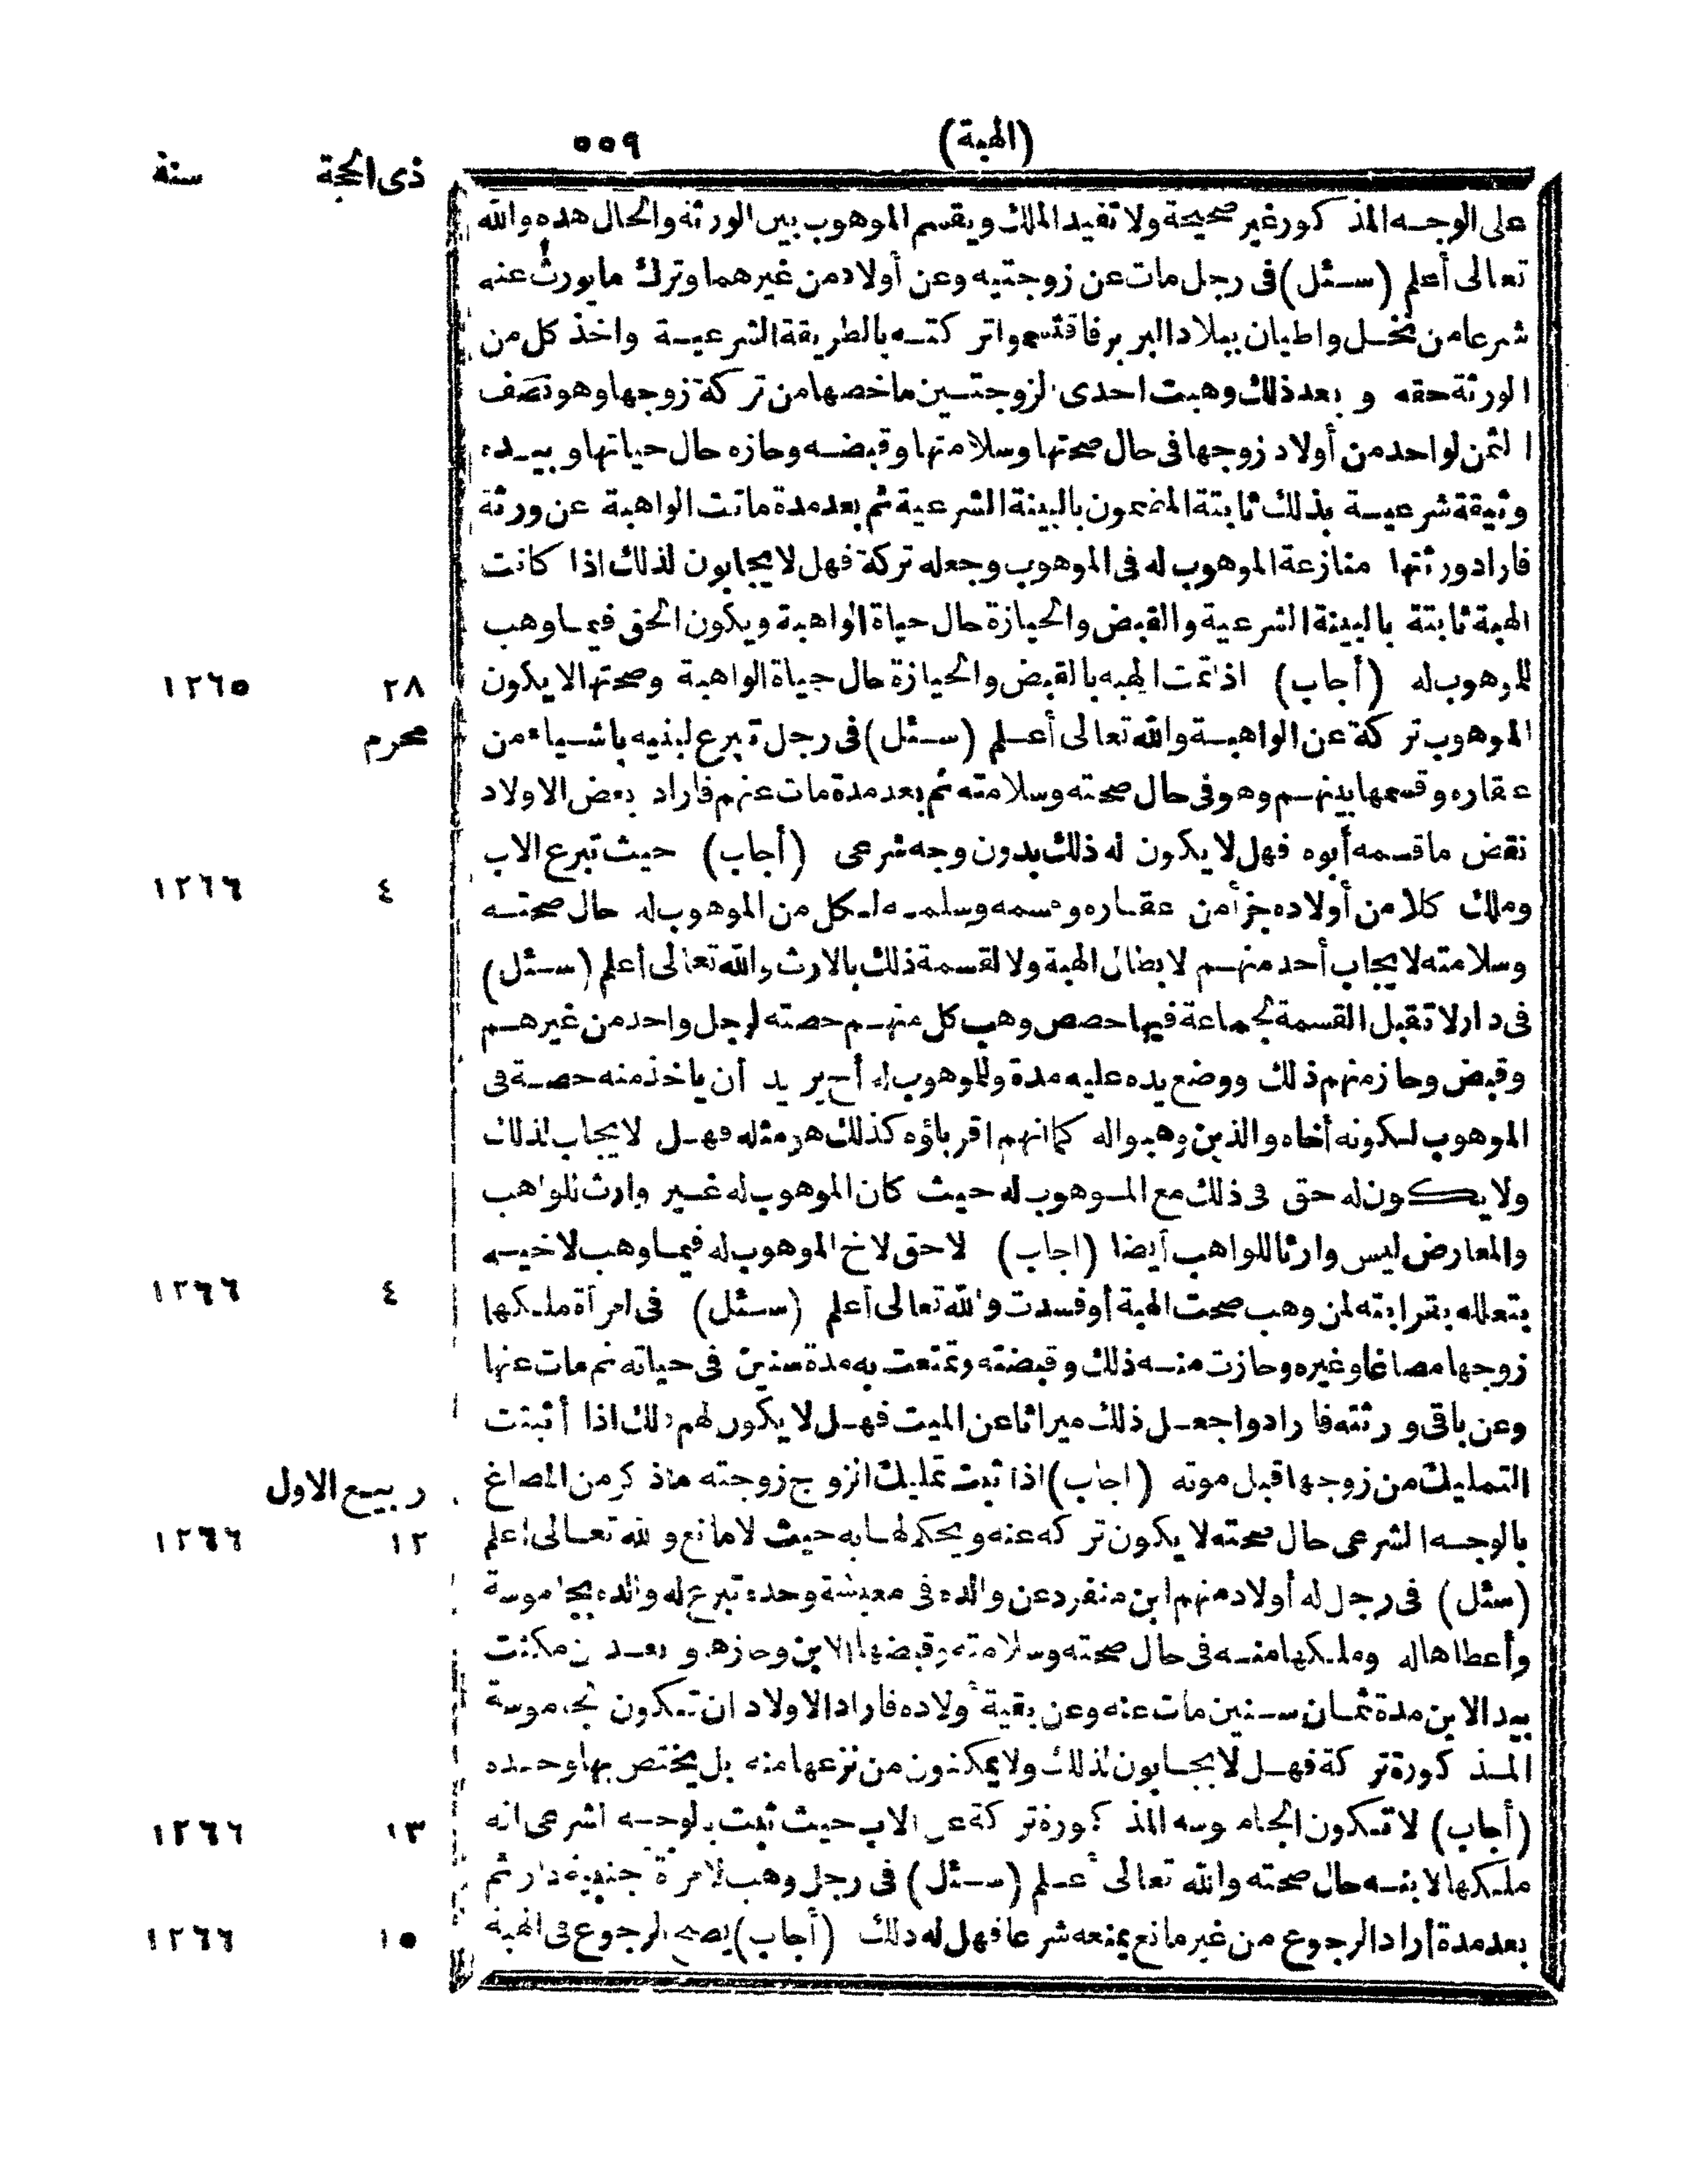 (الهبة) ٥٥٩
ذى الحجة سنة
على الوجه المذكور غير صحيحة ولا تفيد الملك ويقسم الموهوب بين الورثة والحال هذه والله
تعالى أعلم (سئل) فى رجل مات عن زوجتيه وعن أولاد من غيرهما وترك ما يورث عنه
شرعا من نخل واطيان ببلاد البربر فاقتسموا تركته بالطريقة الشرعية واخذ كل من
الورثة حقه وبعد ذلك وهبت احدى الزوجتين ماخصها من تركة زوجها وهو نصف
الثمن لواحد من أولاد زوجها فى حال صحتها وسلامتها وقبضه وحازه حال حياتها وبيده
وثيقة شرعية بذلك ثابتة المضمون بالبينة الشرعية ثم بعد مدة ماتت الواهبة عن ورثة
فاراد ورثتها منازعة الموهوب له فى الموهوب وجعله تركة فهل لا يجابون لذلك اذا كانت
الهبة ثابتة بالبينة الشرعية والقبض والحيازة حال حياة الواهبة ويكون الحق فيما وهب
للموهوب له (أجاب) اذا تمت الهبه بالقبض والحيازة حال حياة الواهبة وصحتها لا يكون ٢٨ ١٢٦٥
الموهوب تركة عن الواهبة والله تعالى أعلم (سئل) فى رجل تبرع لبنيه باشياء من محرم
عقاره وقسمها بينهم وهو فى حال صحته وسلامته ثم بعد مدة مات عنهم فاراد بعض الاولاد
نقض ما قسمه أبوه فهل لا يكون له ذلك بدون وجه شرعى (أجاب) حيث تبرع الاب
وملك كلا من أولاده جزأ من عقاره وقسمه وسلمه لكل من الموهوب له حال صحته ٤ ١٢٦٦
وسلامته لا يجاب أحد منهم لابطال الهبة ولا لقسمة ذلك بالارث والله تعالى أعلم (سئل)
فى دار لا تقبل القسمة لجماعة فيها حصص وهب كل منهم حصته لرجل واحد من غيرهم
وقبض وحاز منهم ذلك ووضع يده عليه مدة وللموهوب له أخ يريد أن ياخذ منه حصة فى
الموهوب لكونه أخاه والذين وهبوا له كما انهم اقرباؤه كذلك هو مثله فهل لا يجاب لذلك
ولا يكون له حق فى ذلك مع الموهوب له حيث كان الموهوب له غير وارث للواهب
والمعارض ليس وارثا للواهب أيضا (اجاب) لا حق لاخ الموهوب له فيما وهب لاخيه
بتعلله بقرابته لمن وهب صحت الهبة أو فسدت والله تعالى أعلم (سئل) فى امرأة ملكها ٤ ١٢٦٦
زوجها مصاغا وغيره وحازت منه ذلك وقبضته وتمتعت به مدة سنين فى حياته ثم مات عنها
وعن باقى ورثته فارادوا جعل ذلك ميراثا عن الميت فهل لا يكون لهم ذلك اذا أثبتت
التمليك من زوجها قبل موته (اجاب) اذا ثبت تمليك الزوج زوجته ماذكر من المصاغ ربيع الاول
بالوجه الشرعى حال صحته لا يكون تركه عنه ويحكم لها به حيث لا مانع والله تعالى اعلم ١٢ ١٢٦٦
(سئل) فى رجل له أولاد منهم ابن منفرد عن والده فى معيشة وحده تبرع له والده بجاموسة
وأعطاها له وملكها منه فى حال صحته وسلامته وقبضها الابن وحازها وبعد ان مكثت
بيد الابن مدة ثمان سنين مات عنه وعن بقية أولاده فاراد الاولاد ان تكون الجاموسة
المذكورة تركة فهل لا يجابون لذلك ولا يمكنون من نزعها منه بل يختص بها وحده
(أجاب) لا تكون الجاموسه المذكورة تركة عن الاب حيث ثبت بالوجه الشرعى انه ١٣ ١٢٦٦
ملكها لابنه حال صحته والله تعالى أعلم (سئل) فى رجل وهب لامرأة أجنبية دار ثم
بعد مدة أراد الرجوع من غير مانع يمنعه شرعا فهل له ذلك (أجاب) يصح الرجوع فى الهبة ١٥ ١٢٦٦